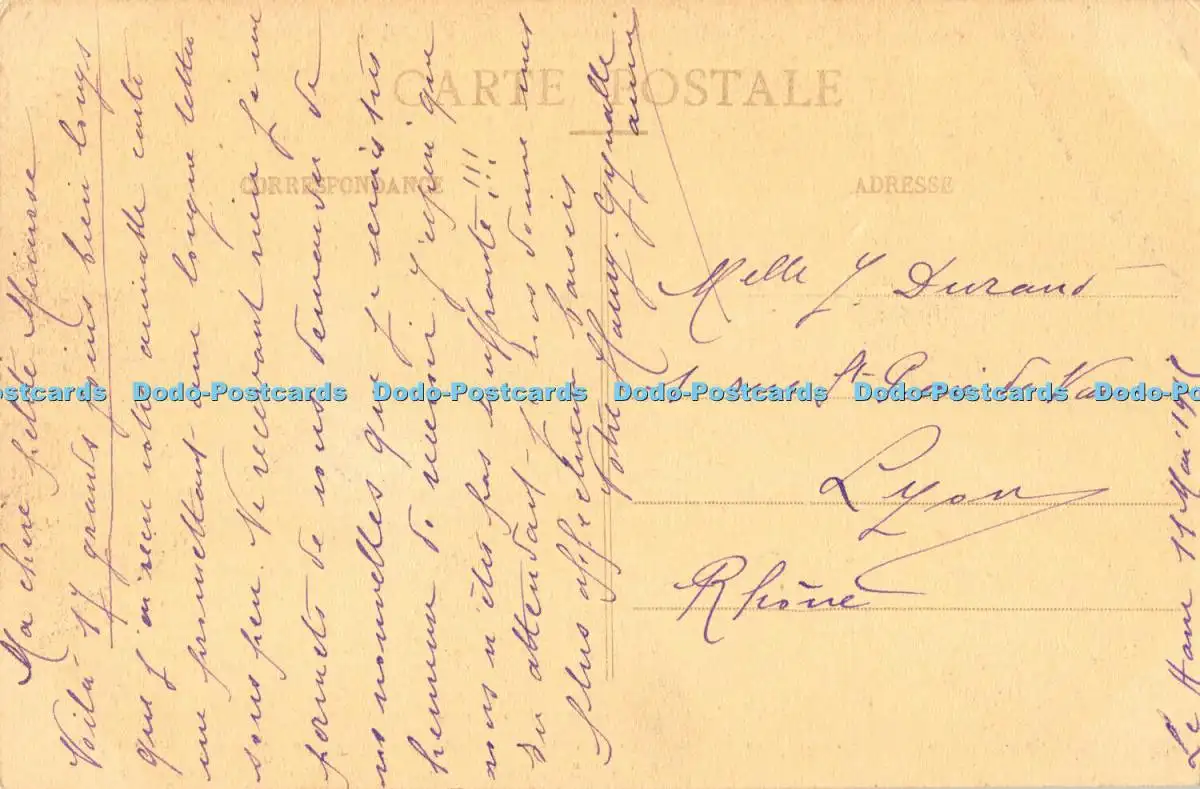 CARTE POSTALE
CORRESPONDANCE
ADRESSE
Ma chère petite
Voilà 17 grands jours bien longs
que j'ai reçu votre aimable carte
me promettant une longue lettre
sous peu. Ne recevant rien je me
permets de vous demander de
vos nouvelles que je serais très
heureux de recevoir. J'espère que
vous n'êtes pas souffrante!!!
En attendant je vous donne mes
plus affectueux baisers
Votre
ami
Melle J Durand
rue St
Lyon
Rhône
Le 11 Mai
Dodo-Postcards Dodo-Postcards Dodo-Postcards Dodo-Postcards Dodo-Postcards